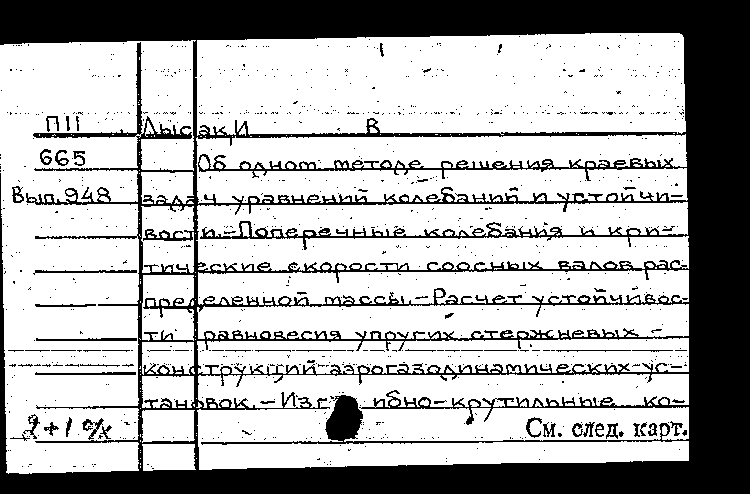 П11 Лысак, И В
665 Об одном методе решения краевых
Вып. 948 задач уравнений колебаний и устойчи-
вости.-Поперечные колебания и кри-
тические скорости соосных валов рас-
пределенной массы.-Расчет устойчивос-
ти равновесия упругих стержневых -
конструкций аэрогазодинамических ус-
тановок.-Изгибно-крутильные ко-
2+1 о/х См. след. карт.